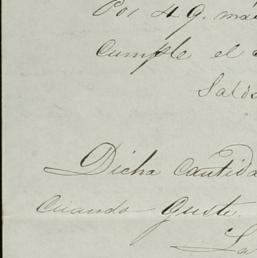 Por 49. más
Cumple el
Saldo
Dicha Cantida
Cuando Guste.
La